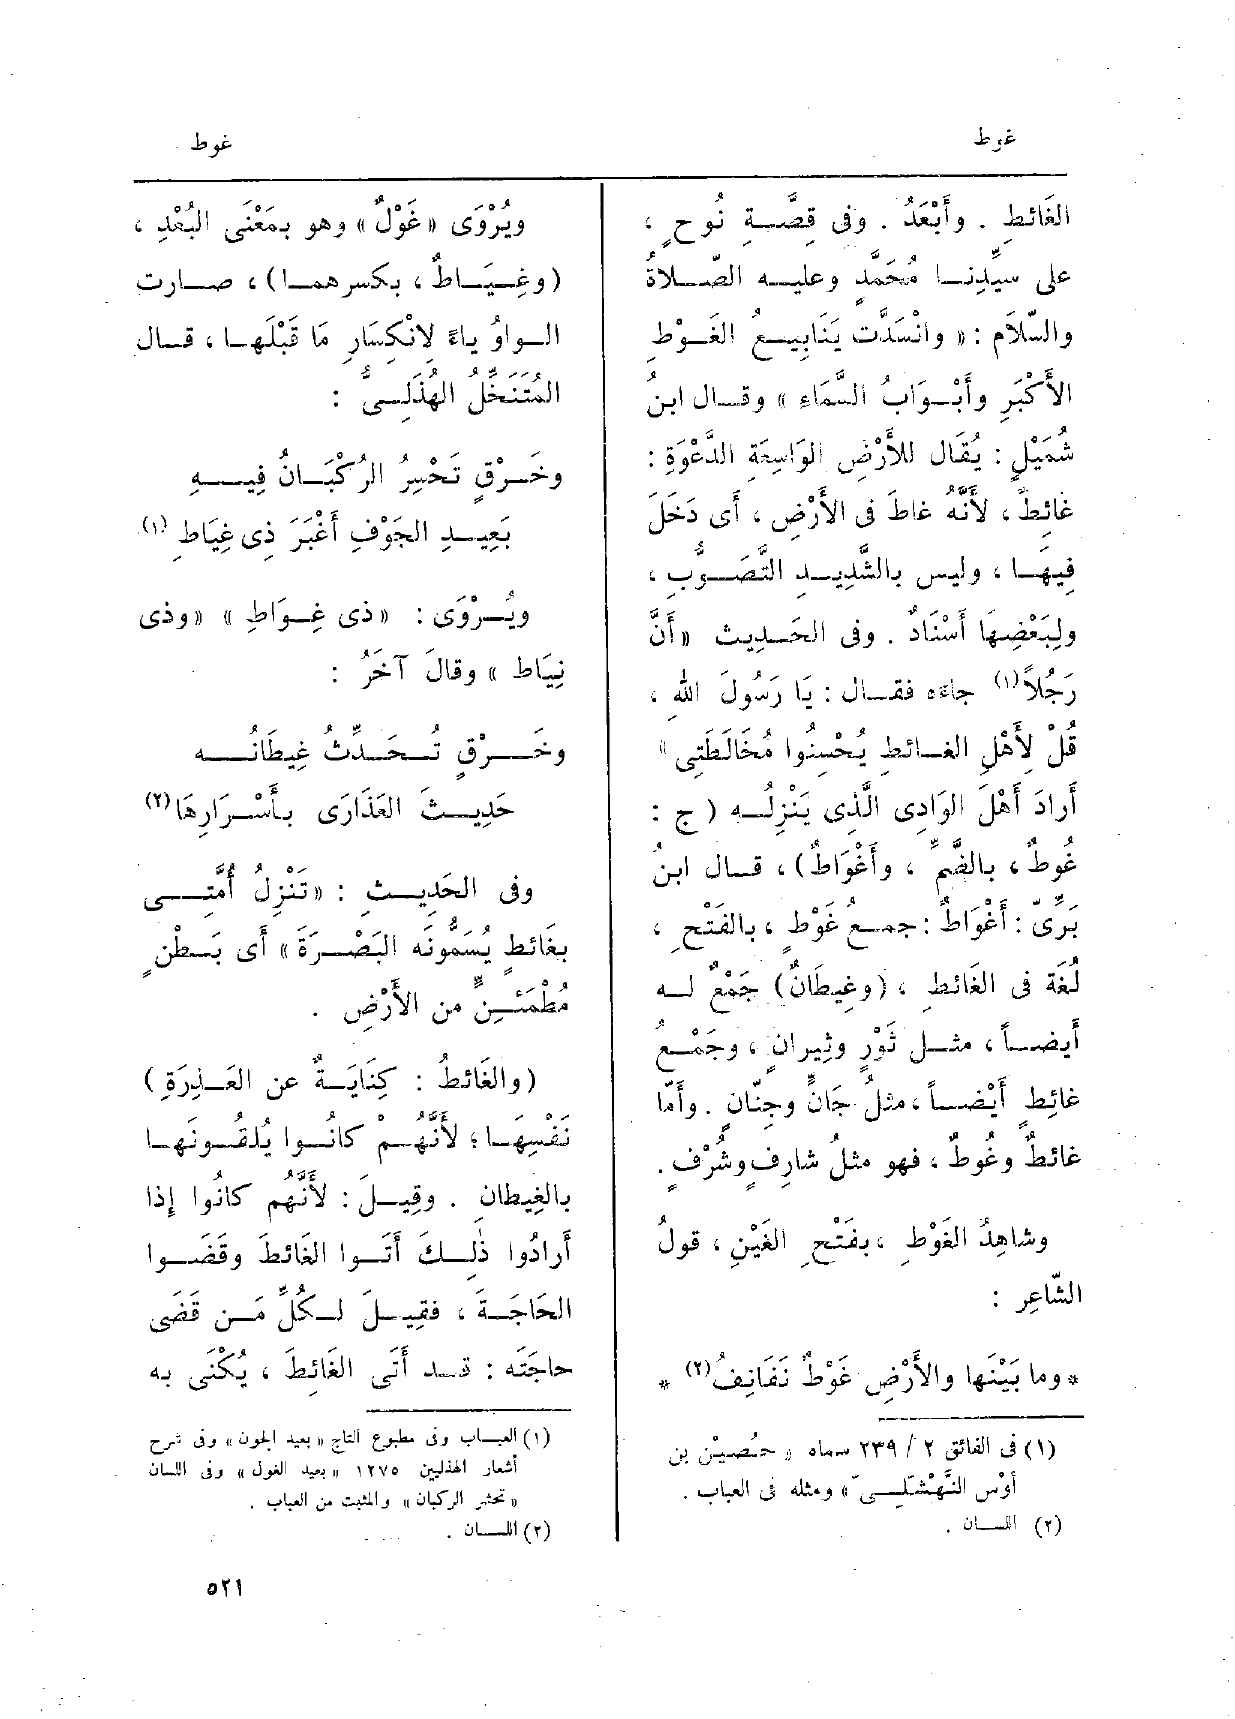 غوط
غوط
الغَائطِ . وأَبْعَدُ . وفى قِصَّـة نُوحٍ ،
على سيِّدِنـا مُحَمَّدٍ وعليـه الصَّـلاةُ
والسَّلاَم : « وانْسَدَّت يَنَابِيـعُ الغَـوْطِ
الأَكْبَرِ وأَبْـوَابُ السَّمَاءِ » وقـال ابنُ
شُمَيْلٍ : يُقَال للأَرْضِ الوَاسِعَة الدَّعْوَةِ :
غائِطٌ ، لأَنَّهُ غاطَ فى الأَرْضِ ، أَى دَخَلَ
فِيهَـا ، وليس بالشَّدِيـدِ التَّصَـوُّبِ ،
ولِبَعْضِهَا أَسْنَادٌ . وفى الحَـدِيث « أَنَّ
رَجُلاً(١) جاءَه فقـال : يَا رَسُولَ اللهِ ،
قُلْ لأَهْلِ الغـائطِ يُحْسِنُوا مُخَالَطَتِى »
أَرادَ أَهْلَ الوَادِى الَّذِى يَنْزِلُـه ( ج :
غُوطٌ ، بالضَّمِّ ، وأَغْوَاطٌ) ، قـال ابنُ
بَرِّىّ : أَغْوَاطٌ : جمـعُ غَوْطٍ ، بالفَتْحِ ،
لُغَة فى الغَائطِ ، (وغِيطَانٌ) جَمْعٌ لـه
أَيضـاً ، مثـل ثَوْرٍ وثِيرانٍ ، وجَمْـعُ
غائِطٍ أَيْضـاً ، مثلُ جَانٍّ وجِنَّانٍ . وأَمّا
غائطٌ وغُوطٌ ، فهو مثلُ شارِفٍ وشُرْفٍ .
وشاهِدُ الغَوْطِ ، بفَتْحِ الغَيْنِ ، قولُ
الشّاعِر :
* وما بَيْنَها والأَرْضِ غَوْطٌ نَفَانِفُ(٢) *
(١) فى الفائق ٢ / ٢٣٩ سماه « حُصَيْن بن
أَوْس النَّهْشَلِـىّ » ومثله فى العباب .
(٢) اللسـان .
ويُرْوَى « غَوْلٌ » وهو بمَعْنَى البُعْدِ ،
(وغِـيَـاطٌ ، بكسرهمـا) ، صـارت
الـواوُ ياءً لاِنْكِسَارِ مَا قَبْلَهـا ، قـال
المُتَنَخِّلُ الهُذَلِـىُّ :
وخَـرْقٍ تَحْسِرُ الرُكْبَـانُ فِيــهِ
بَعِيـدِ الجَوْفِ أَغْبَرَ ذِى غِيَاطِ (١)
ويُـرْوَى : « ذى غِـوَاطِ » « وذى
نِيَاط » وقالَ آخَرُ :
وخَــرْقٍ تُـحَـدِّثُ غِيطَانُــه
حَدِيـثَ العَذَارَى بـأَسْـرَارِهَا(٢)
وفى الحَدِيـث : « تَنْزِلُ أُمَّتِــى
بغَائطٍ يُسَمُّونَه البَصْـرَةَ » أَى بَـطْنٍ
مُطْمَئـِنٍّ من الأَرْضِ .
(والغَائطُ : كِنَايَـةٌ عن العَـذِرَةِ )
نَفْسِهَـا ؛ لأَنَّهُـمْ كانُـوا يُلْقُـونَهـا
بالغِيطانِ . وقِيـلَ : لأَنَّهُم كانُوا إِذا
أَرادُوا ذٰلِـكَ أَتَـوا الغَائطَ وقَضَـوا
الحَاجَـةَ ، فقِيـلَ لِـكُلِّ مَـن قَضَى
حاجَتَه : قـد أَتَى الغَائطَ ، يُكْنَى به
(١) العبـاب وفى مطبوع التاج « بعيد الجون » وفى شرح
أشعار الهذليين ١٢٧٥ « بعيد الغول » وفى اللسان
« تحشر الركبان » والمثبت من العباب .
(٢) اللسـان .
٥٢١